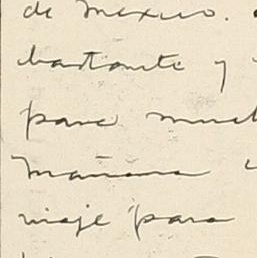 de Mexico.
bastante y
para much
mañana
viaje para